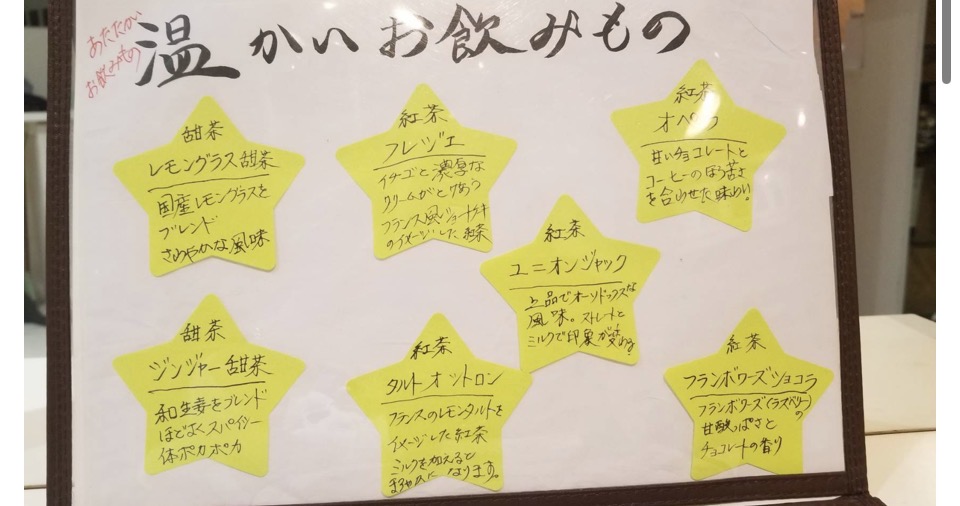 あたたかい
お飲みもの
温かいお飲みもの
甜茶
レモングラス甜茶
国産レモングラスを
ブレンド
さわやかな風味
紅茶
フレジエ
イチゴと濃厚な
クリームがとけあう
フランス風ショートケーキ
のイメージした紅茶
紅茶
オペラ
甘いチョコレートと
コーヒーのほろ苦さ
を合わせた味わい
紅茶
ユニオンジャック
上品でオーソドックスな
風味。ストレートと
ミルクで印象が変わる!
甜茶
ジンジャー甜茶
和生姜をブレンド
ほどよくスパイシー
体ポカポカ
紅茶
タルトオシトロン
フランスのレモンタルトを
イメージした紅茶
ミルクを加えると
まろやかになります。
紅茶
フランボワーズショコラ
フランボワーズ(ラズベリー)の
甘酸っぱさと
チョコレートの香り